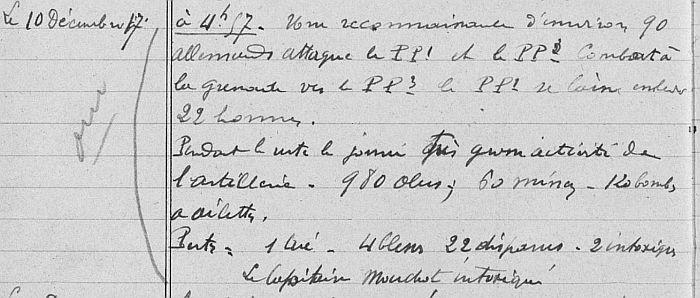 Le 10 Décembre 17. à 4h 57. Une reconnaissance d'environ 90
allemands attaque le PP1 et le PP2 Combat à
la grenade vers le PP3 le PP1 se laisse enlever
22 hommes.
Pendant le reste la journée très grosse activité de
l'artillerie - 980 obus, 60 mines - 120 bombes
à ailettes.
Pertes = 1 tué - 4 blessés 22 disparus - 2 intoxiqués
Le Capitaine Mouchot intoxiqué